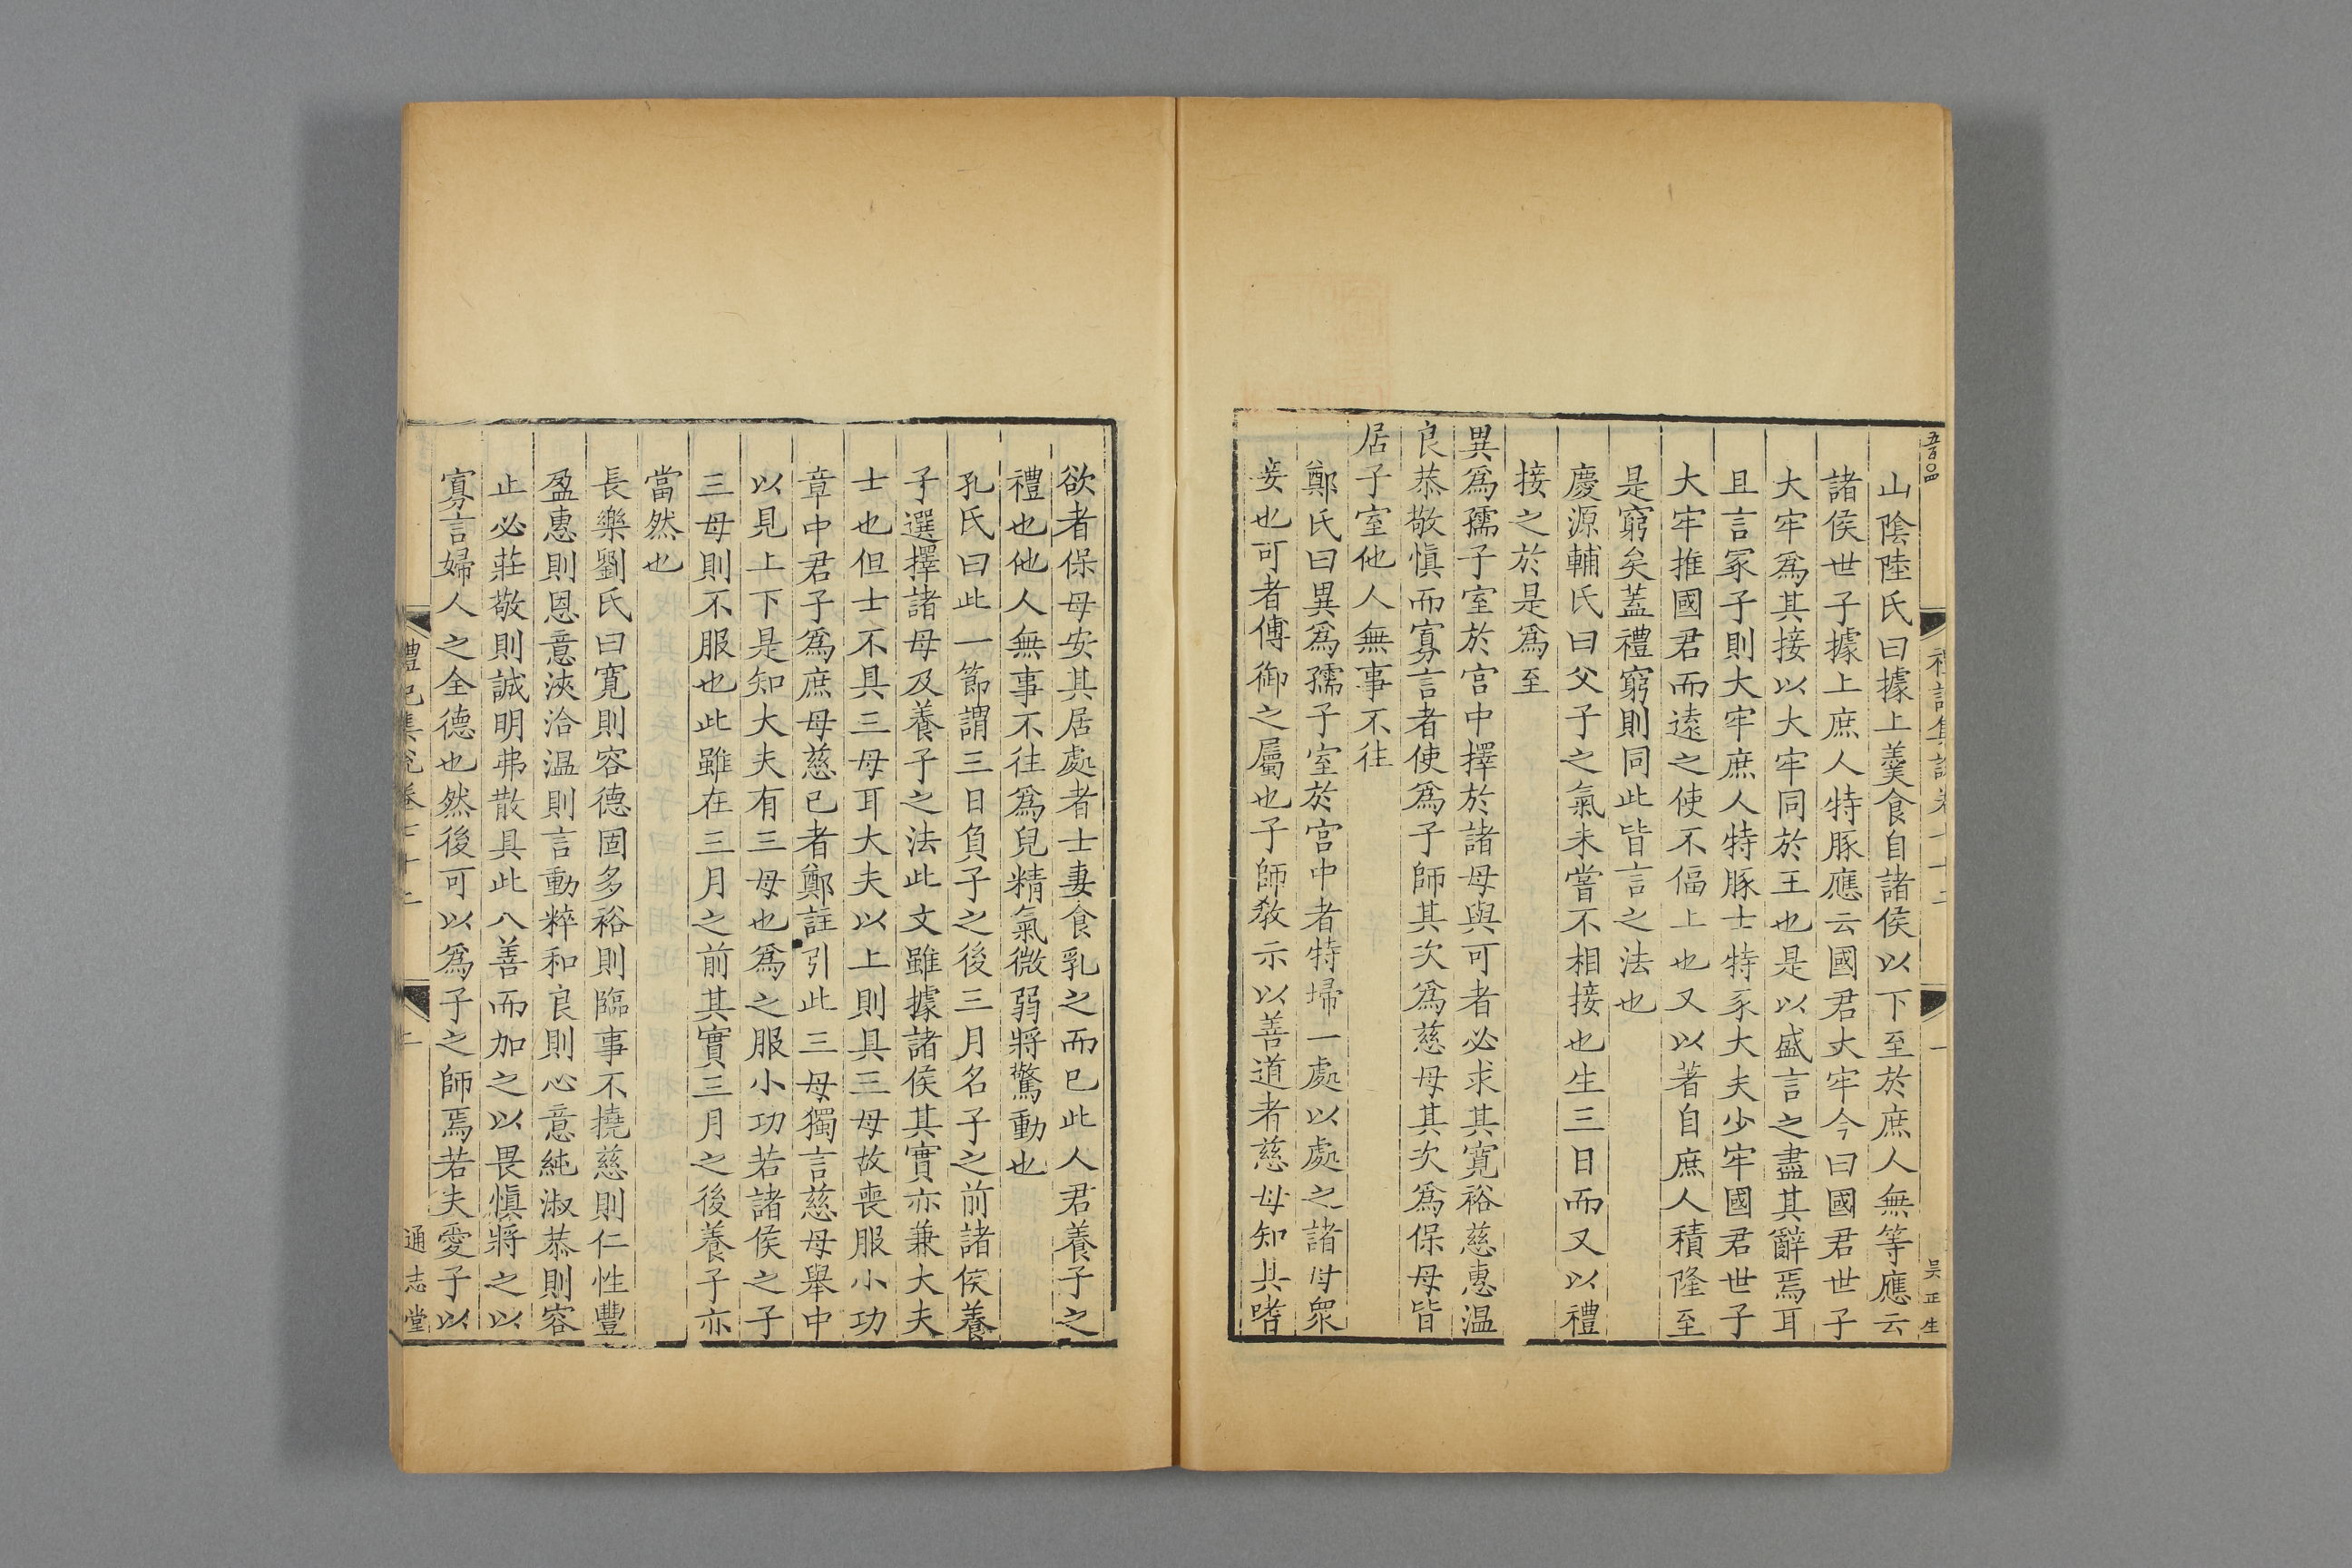 山陰陸氏曰據上羹食自諸侯以下至於庶人無等應云
諸侯世子據上庶人特豚應云國君大牢今曰國君世子
大牢爲其接以大牢同於王也是以盛言之盡其辭焉耳
且言冢子則大牢庶人特豚士特豕大夫少牢國君世子
大牢推國君而遠之使不偪上也又以著自庶人積隆至
是窮矣蓋禮窮則同此皆言之法也
慶源輔氏曰父子之氣未嘗不相接也生三日而又以禮
接之於是爲至
異爲孺子室於宮中擇於諸母與可者必求其寬裕慈惠温
良恭敬慎而寡言者使爲子師其次爲慈母其次爲保母皆
居子室他人無事不往
鄭氏曰異爲孺子室於宮中者特埽一處以處之諸母衆
妾也可者傅御之屬也子師敎示以善道者慈母知其嗜
吳正生
欲者保母安其居處者士妻食乳之而已此人君養子之
禮也他人無事不往爲兒精氣微弱將驚動也
孔氏曰此一節謂三日負子之後三月名子之前諸侯養
子選擇諸母及養子之法此文雖據諸侯其實亦兼大夫
士也但士不具三母耳大夫以上則具三母故喪服小功
章中君子爲庶母慈已者鄭註引此三母獨言慈母舉中
以見上下是知大夫有三母也爲之服小功若諸侯之子
三母則不服也此雖在三月之前其實三月之後養子亦
當然也
長樂劉氏曰寬則容德固多裕則臨事不撓慈則仁性豐
盈惠則恩意浹洽温則言動粹和良則心意純淑恭則容
止必莊敬則誠明弗散具此八善而加之以畏慎將之以
寡言婦人之全德也然後可以爲子之師焉若夫愛子以
禮記集說卷七十二
二
通志堂